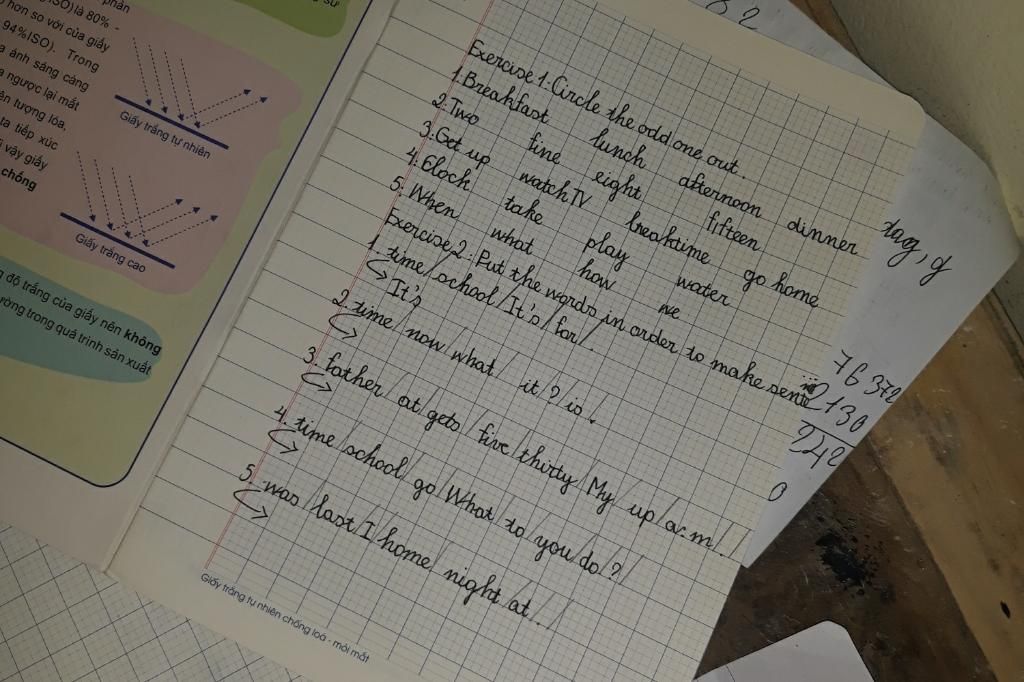 phản
(ISO) là 80% -
hơn so với của giấy
94%ISO). Trong
ánh sáng càng
ngược lại mắt
ên tượng lóa,
ta tiếp xúc
vậy giấy
chống
Giấy trắng tự nhiên
Giấy trắng cao
độ trắng của giấy nên không
ường trong quá trình sản xuất
Exercise 1: Circle the odd one out.
1. Breakfast lunch afternoon dinner
2. Two fine eight fifteen
3. Get up watch TV breaktime go home
4. Clock take play water
5. When what how we
Exercise 2: Put the words in order to make sente
1. time / school / It's / for / .
It's
2. time / now / what / it ? is / .
3. father / at / gets / five / thirty / My / up / a.m / . /
4. time / school / go / What / to / you / do / ? /
5. was / last / I / home / night / at / . /
Giấy trắng tự nhiên chống loá - mỏi mắt
tag, g
76 372
2130
242
0